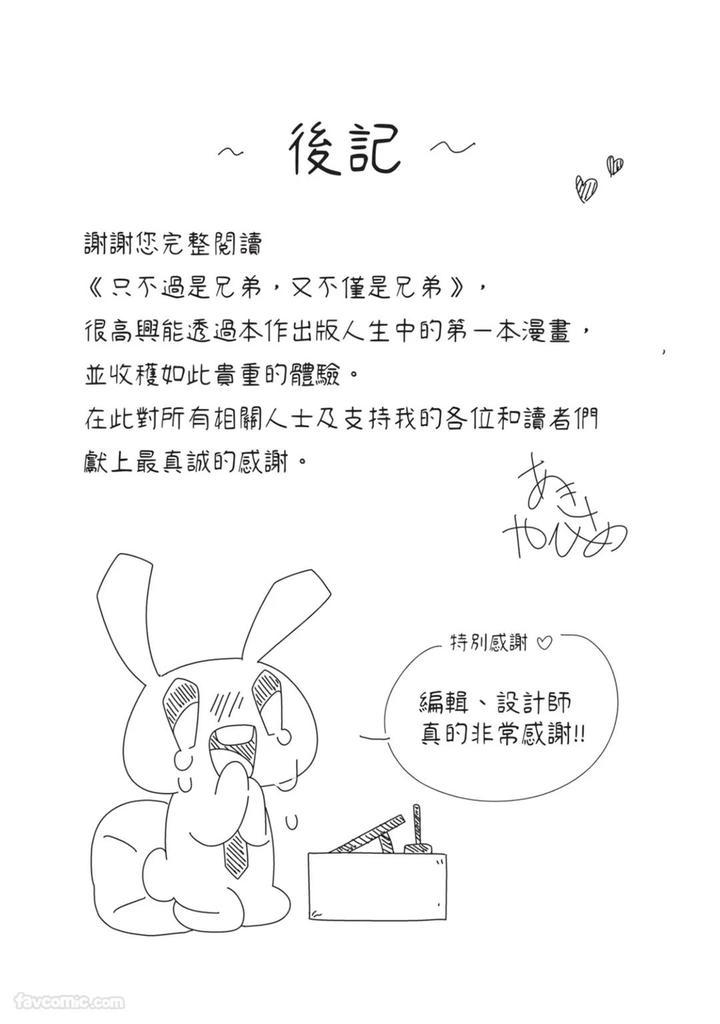 ～ 後記 ～
謝謝您完整閱讀
《只不過是兄弟，又不僅是兄弟》，
很高興能透過本作出版人生中的第一本漫畫，
並收穫如此貴重的體驗。
在此對所有相關人士及支持我的各位和讀者們
獻上最真誠的感謝。
あき
やひめ
特別感謝♡
編輯、設計師
真的非常感謝!!
favcomic.com